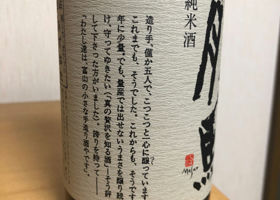 純米酒
造り手、僅か五人で、こつこつと一心に醸っています
これまでも、そうでした。これからも、そうです
年に少量。でも、量産では出せないうまさを醸り続
け、守ってゆきたい（真の贅沢を知る酒）―そう評
して下さった方がいました。誇りを持って――
わたし達は、富山の小さな手造り酒やです。